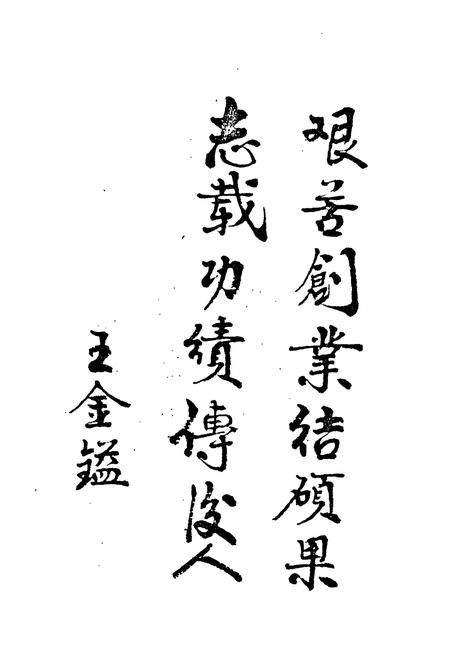 艰苦創業结碩果
志载功績傳後人
王金鎰